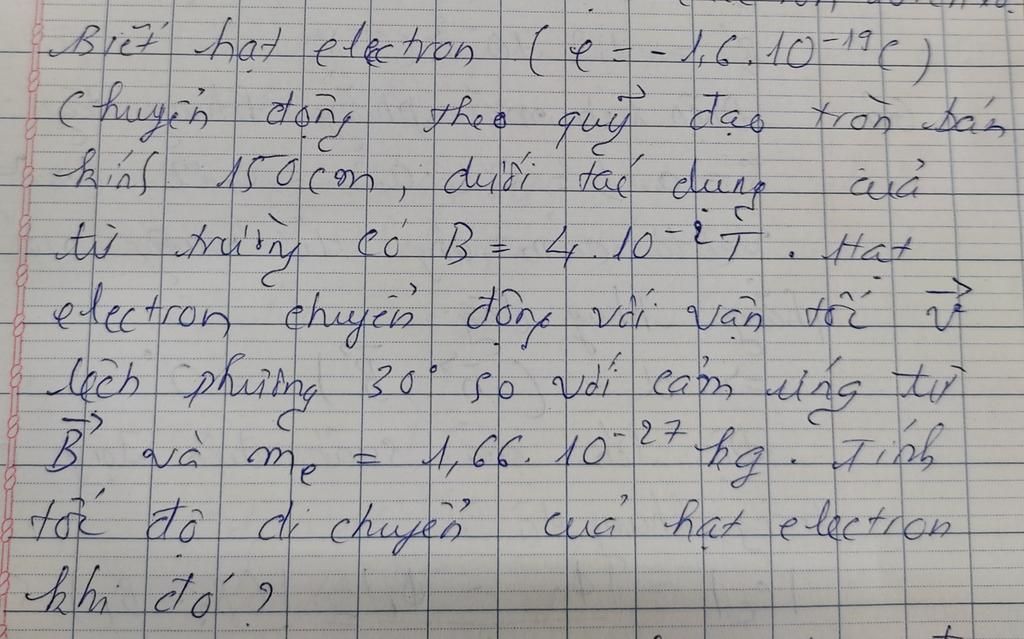 Biết hạt electron (e = -1,6.10⁻¹⁹C)
chuyển động theo quỹ đạo tròn bán
kính 150cm, dưới tác dụng của
từ trường có B = 4.10⁻² T. Hạt
electron chuyển động với vận tốc v⃗
lệch phương 30° so với cảm ứng từ
B⃗ và mₑ = 1,66.10⁻²⁷ kg. Tính
tốc độ di chuyển của hạt electron
khi đó?